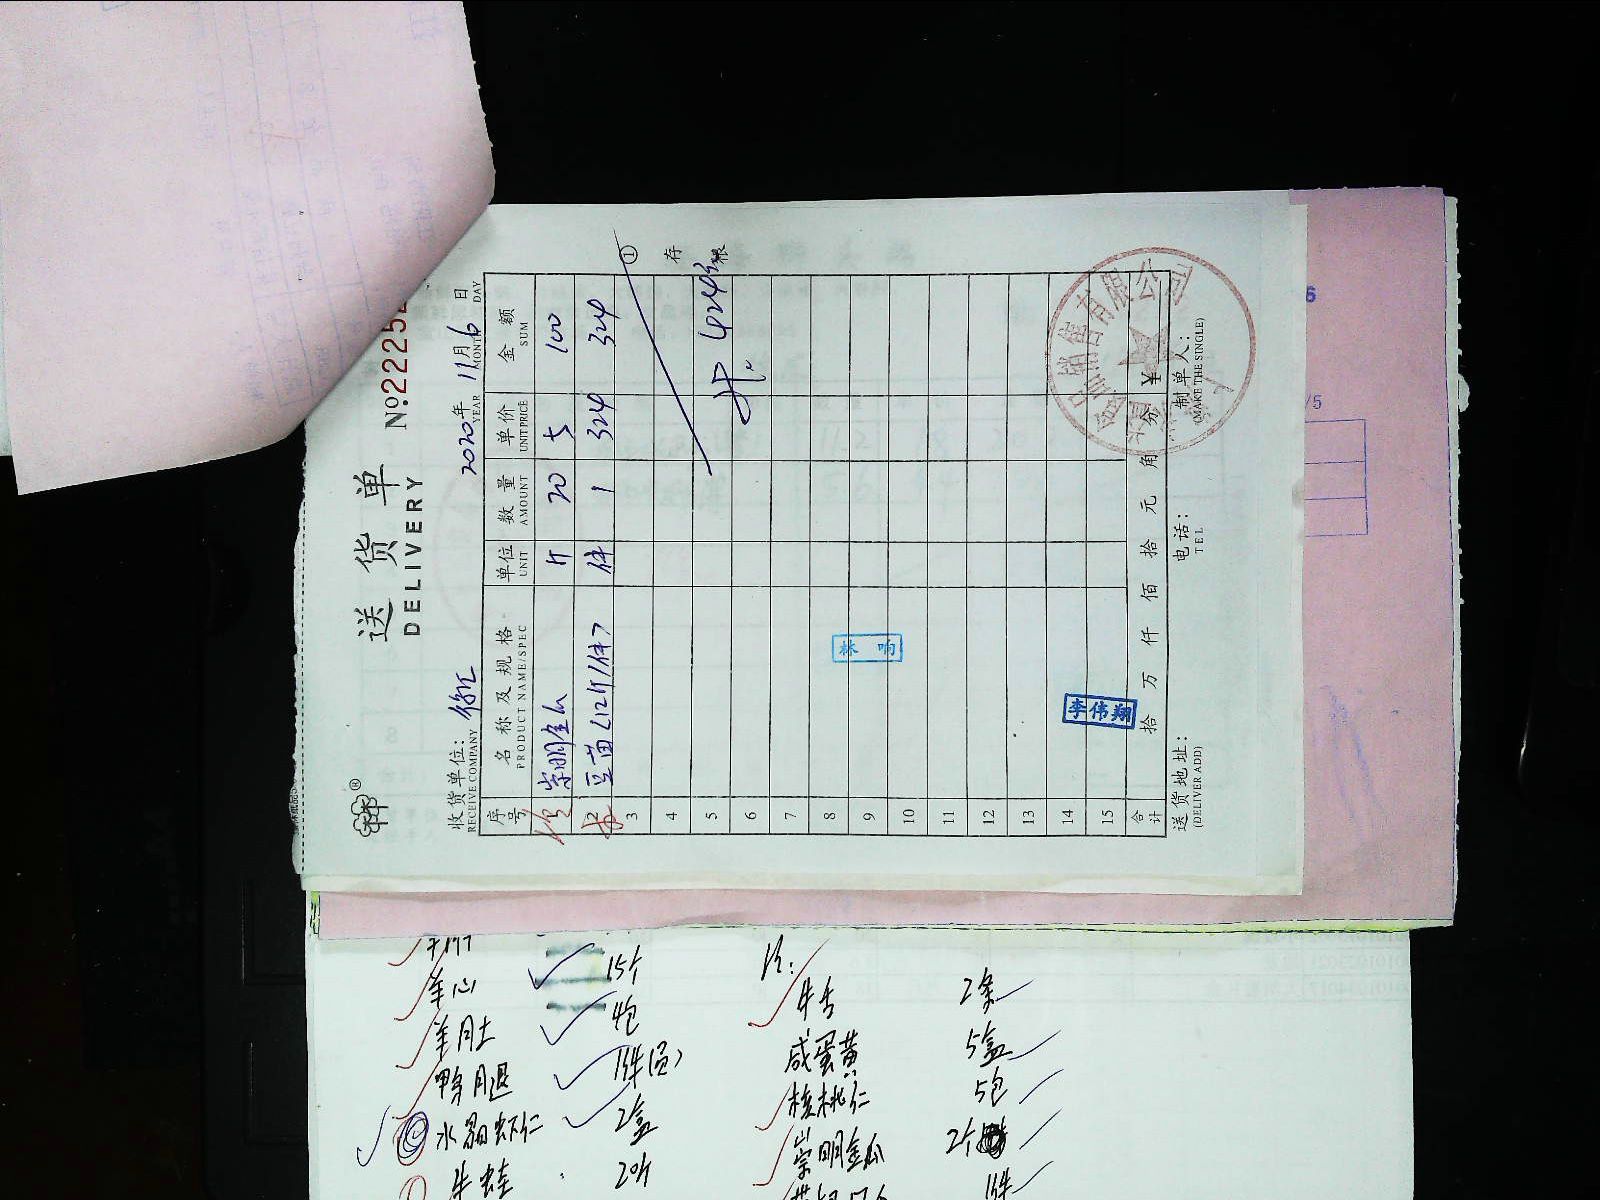 送货单
DELIVERY
No.2225
收货单位：徐汇
RECEIVE COMPANY
2020年 11月 6日
YEAR MONTH DAY
序号 名称及规格 单位 数量 单价 金额
PRODUCT NAME/SPEC UNIT AMOUNT UNIT PRICE SUM
崇明金瓜 斤 20 5 100
2 豆苗<12斤/件> 件 1 324 324
3
4
5
6
7
8
9
10
11
12
13
14
15
共 424元
林响
李伟翔
合计 拾 万 仟 佰 拾 元 角 分 ¥
送货地址： 电话： 制单人：
(DELIVER ADD) TEL (MAKE THE SINGLE)
① 存根
销售有限公司
羊心 15个
羊肚 4包
鸭腿 1件
水晶虾仁 2盒
牛蛙 20斤
牛舌 2条
咸蛋黄 5盒
核桃仁 5包
崇明金瓜 2个
1件
/5
6